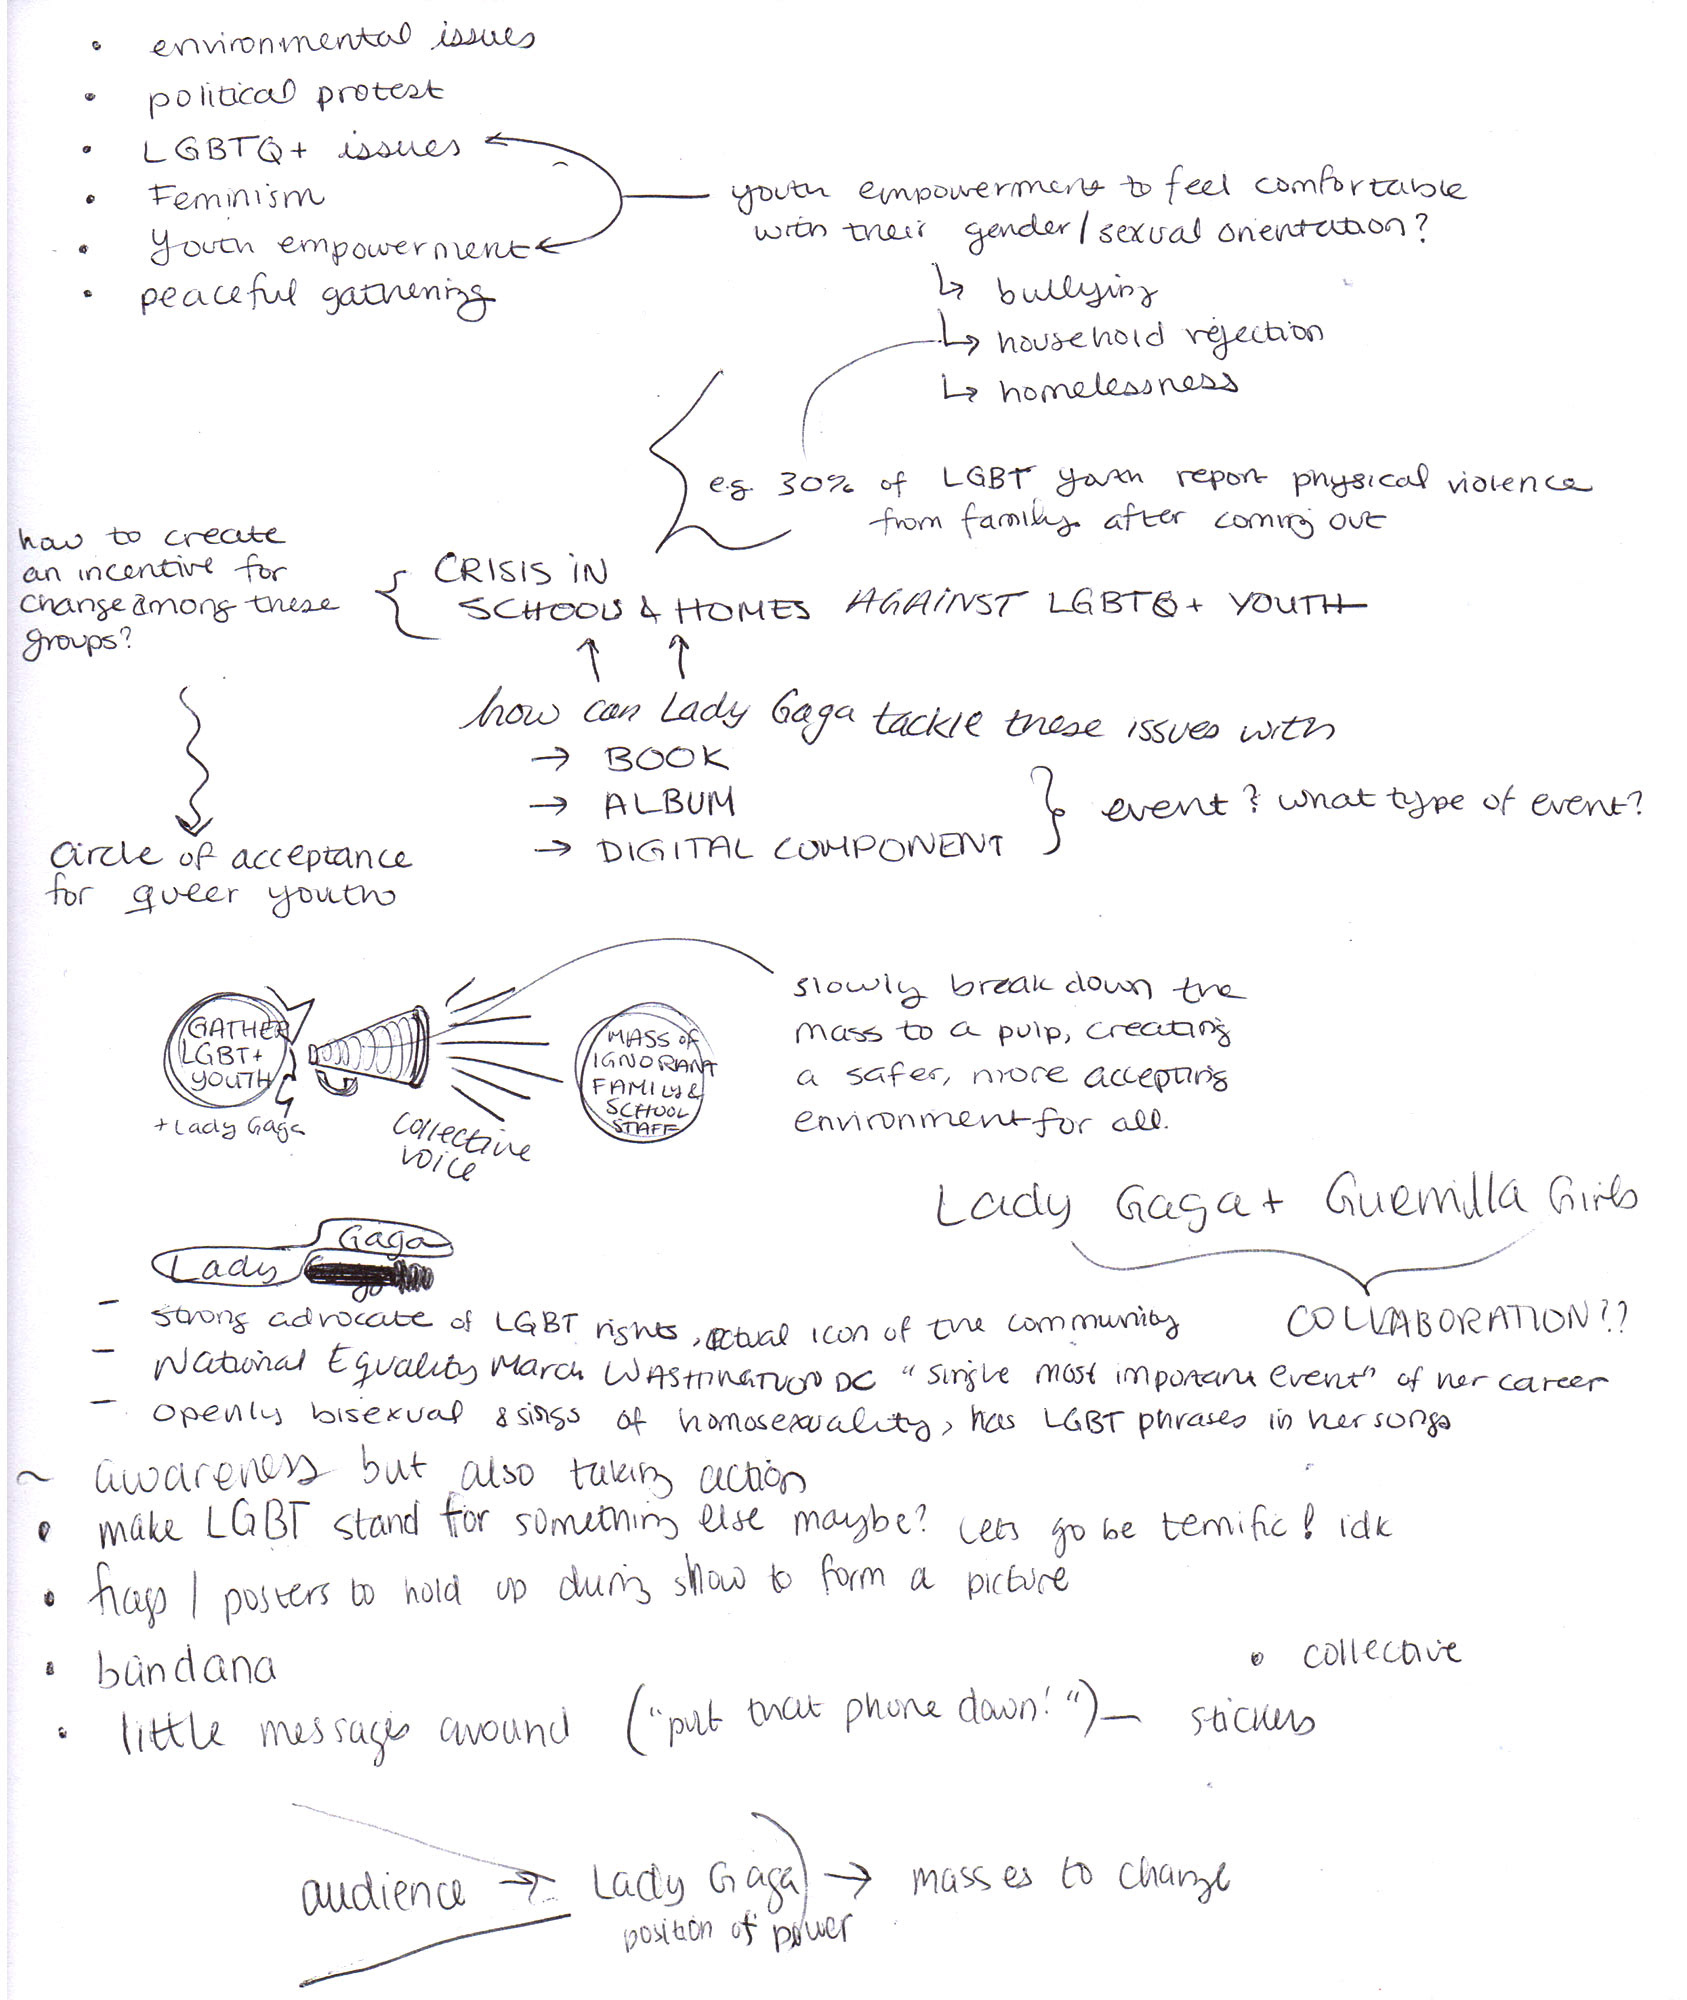 • environmental issues
• political protest
• LGBTQ+ issues
• Feminism
• Youth empowerment
• peaceful gathering
youth empowerment to feel comfortable
with their gender/sexual orientation?
↳ bullying
↳ household rejection
↳ homelessness
e.g. 30% of LGBT youth report physical violence
from family after coming out
how to create
an incentive for
change among these
groups?
CRISIS IN
SCHOOLS & HOMES AGAINST LGBTQ+ YOUTH
how can Lady Gaga tackle these issues with
→ BOOK
→ ALBUM
→ DIGITAL COMPONENT
event? what type of event?
circle of acceptance
for queer youth
GATHER
LGBT+
YOUTH
+ Lady Gaga
collective
voice
MASS OF
IGNORANT
FAMILY &
SCHOOL
STAFF
slowly break down the
mass to a pulp, creating
a safer, more accepting
environment for all.
Lady Gaga + Guerrilla Girls
COLLABORATION??
Lady Gaga
- strong advocate of LGBT rights, actual icon of the community
- National Equality March WASHINGTON DC "single most important event" of her career
- openly bisexual & sings of homosexuality, has LGBT phrases in her songs
~ awareness but also taking action
• make LGBT stand for something else maybe? Lets go be terrific! idk
• flags / posters to hold up during show to form a picture
• bandana
• collective
• little messages around ("put that phone down!") — stickers
audience → Lady Gaga → masses to change
position of power